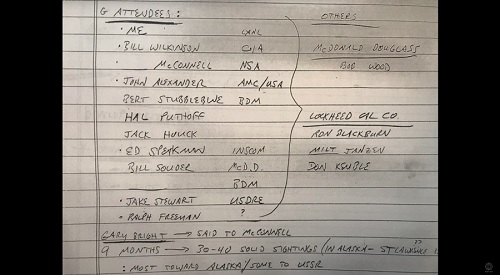 G ATTENDEES:
· ME LANL
· BILL WILKINSON CIA
McCONNELL NSA
· JOHN ALEXANDER AMC/USA
BERT STUBBLEBINE BDM
HAL PUTHOFF
JACK HOUCK
· ED SPEAKMAN INSCOM
BILL SOUDER McD.D.
BDM
· JAKE STEWART USDRE
· RALPH FREEMAN ?
OTHERS
McDONALD DOUGLASS
BOB WOOD
LOCKHEED CAL CO.
RON BLACKBURN
MILT JANZEN
DON KEUBLE
GARY BRIGHT → SAID TO McCONNELL
9 MONTHS → 30-40 SOLID SIGHTINGS (IN ALASKA - ST LAWRENCE
: MOST TOWARD ALASKA/SOME TO USSR